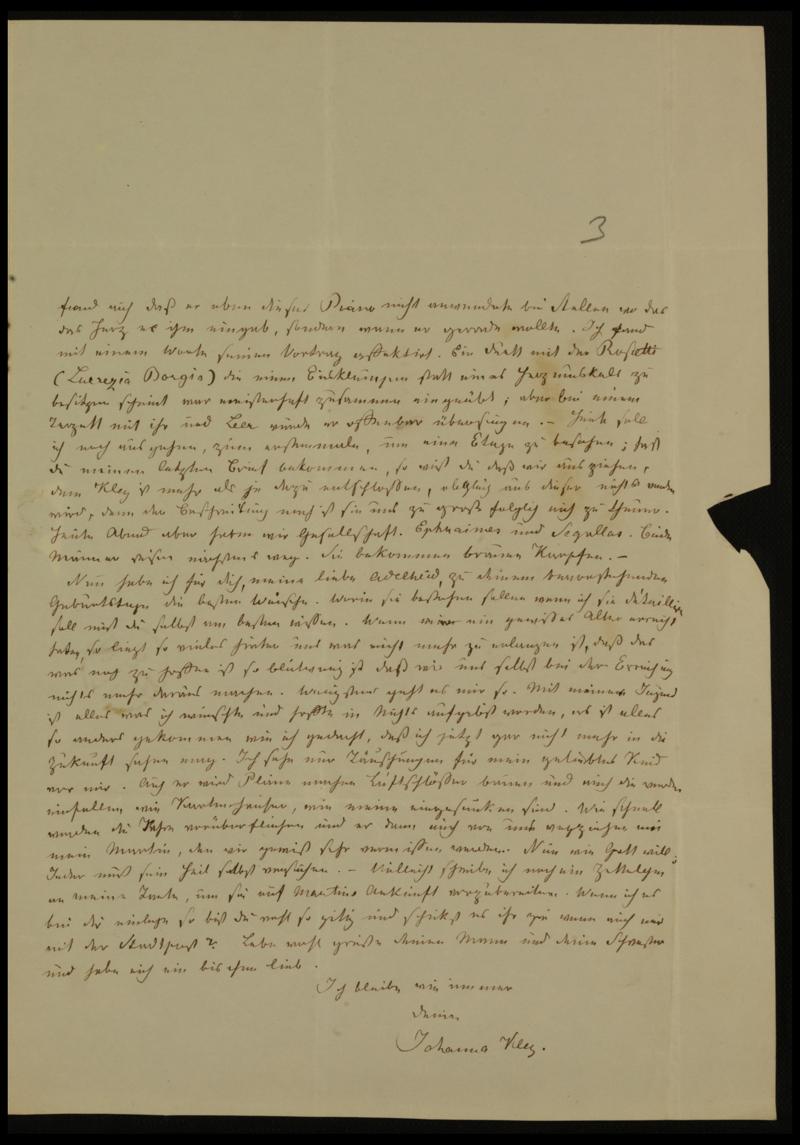 3
fand auch daß er eben dieses Piano nicht anwendete bei Stellen wo das
das Herz es ihm eingab, sondern wann er gerade wollte. Ich fand
mit einem Worte seinen Vortrag affektirt. Ein Duett mit der
(Lucrezia Borgia) die einen statt eines zu
besitzen scheint war meisterhaft zusammen eingeübt; aber bei einem
Terzett mit ihr und wurde er offenbar übersungen. – Heute soll
ich noch ausgehen, zum erstenmale, um eine Etage zu besehen; hast
du meinen letzten Brief bekommen, so wißt du daß wir ausziehen,
denn Kley ist mehr als je dazu entschlossen, obgleich aus dieser nichts werden
wird, denn der Beschreibung nach ist sie uns zu groß folglich auch zu theuer.
Heute Abend aber haben wir Gesellschaft. Ephraimes und Segallas. Beide
Männer reisen nächstens weg. Sie bekommen braunen Karpfen. –
Nun habe ich für dich, meine liebe Adelheid, zu deinem bevorstehenden
Geburtstage die besten Wünsche. Worin sie bestehen sollen wenn ich sie détailliren
soll mußt du selbst am besten wissen. Wenn man ein gewisses Alter erreicht
hat, so liegt so vieles hinter uns was nicht mehr zu erlangen ist, daß das
was noch zu hoffen ist so blutwenig ist daß wir uns selbst bei der Erreichung
nichts mehr daraus machen. Wenigstens geht es mir so. Mit meiner Jugend
ist alles was ich wünschte und hoffte in Nichts aufgelöst worden, es ist alles
so anders gekommen wie ich gedacht, daß ich jetzt gar nicht mehr in die
Zukunft sehen mag. Ich sehe nur Täuschungen für mein geliebtes Kind
vor mir. Auch er wird Pläne machen Luftschlösser bauen und auch die werden
einfallen wie Kartenhäuser, wie meine eingesunken sind. Wie schnell
werden die Jahre vorüberfliehen und er dann auch von uns wegziehen wie
mein Martin, den wir gewiß sehr vermissen werden. Nun wie Gott will;
Jeder muß sein Heil selbst versuchen. – Vielleicht schreibe ich noch ein Zettelchen
an meine Tante, um sie auf Martins Ankunft vorzubereiten. Wenn ich es
bei dir einlege so bist du wohl so gütig und schickst es ihr zu wenn auch nur
mit der Stadtpost? Lebe wohl grüße deinen Mann und deine Schwester
und habe auch ein bischen lieb.
Ich bleibe wie immer
deine
Johanna Kley.